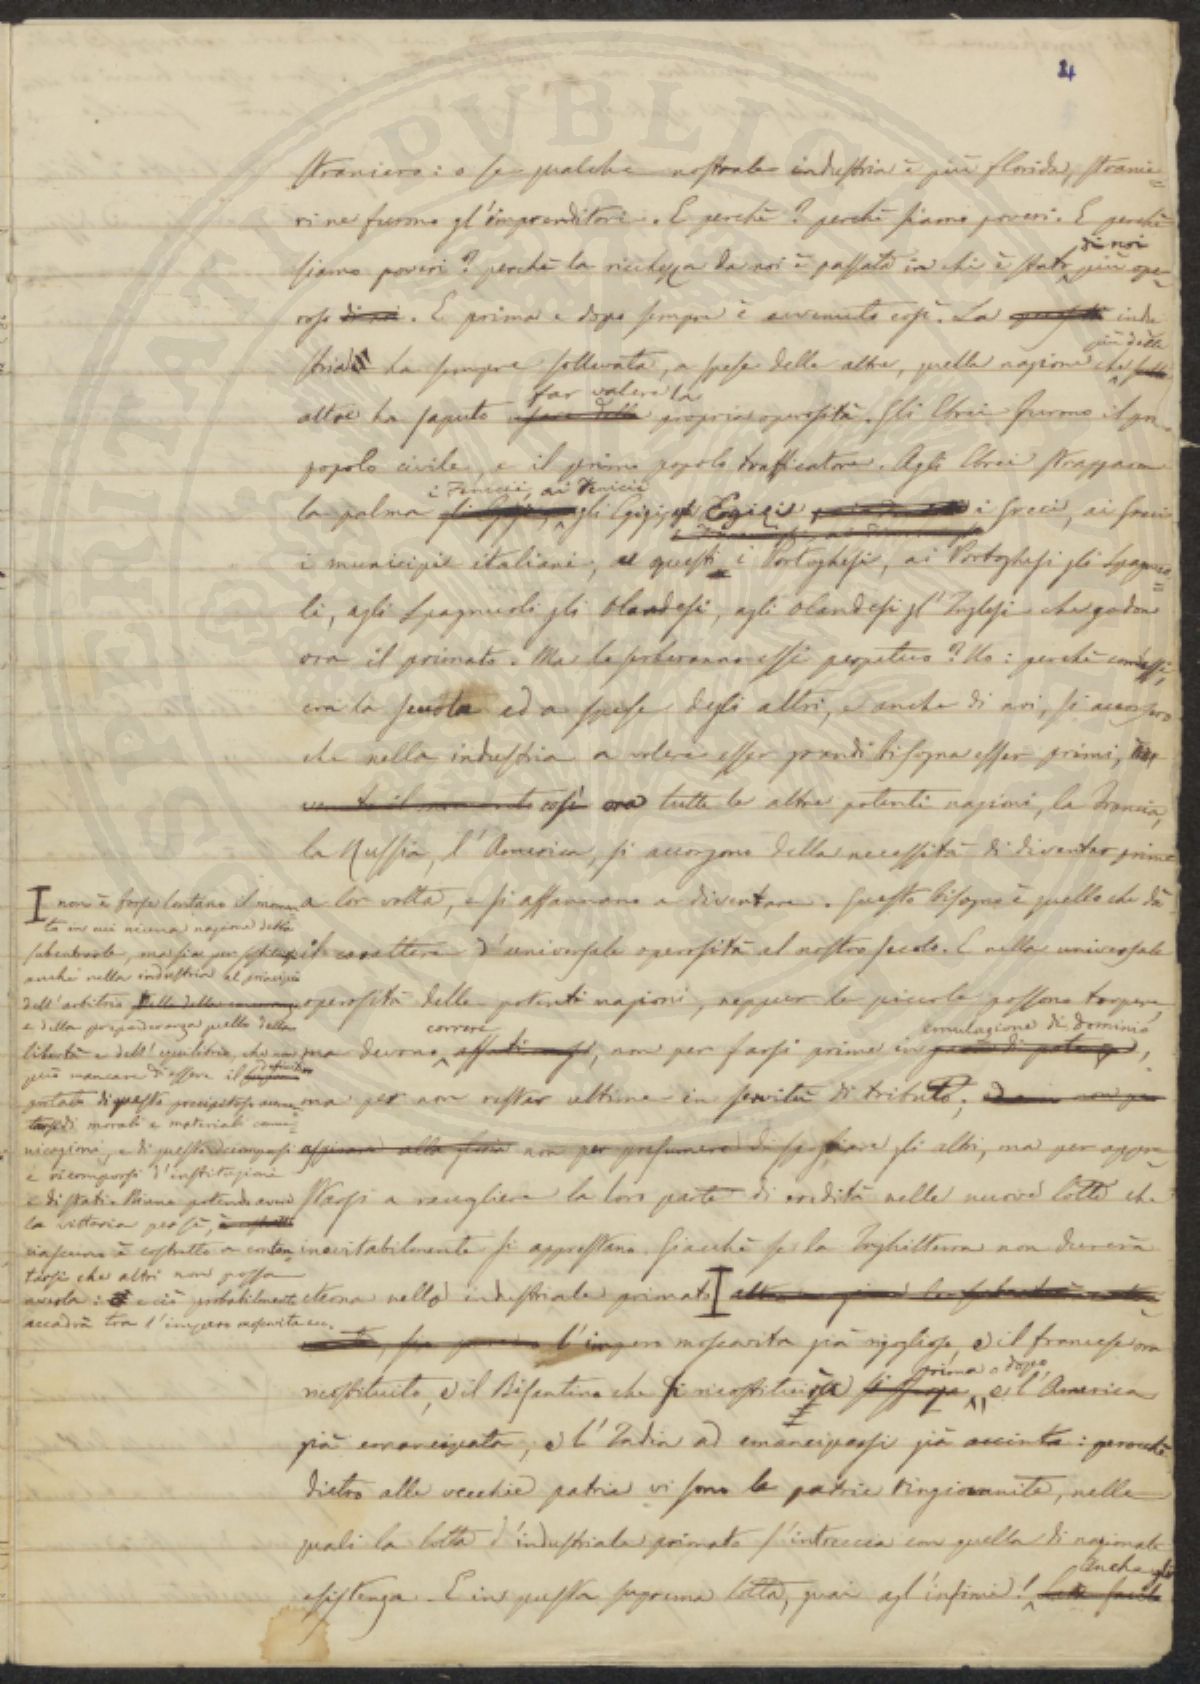 4
straniera: o se qualche nostrale industria è più florida, stranie=
ri ne furono gl'imprenditori. E perchè? perchè siamo poveri. E perchè
siamo poveri? perchè la ricchezza da noi è passata in chi è stato di noi più ope=
roso di noi. E prima e dopo sempre è avvenuto così. La indu
stria ha sempre sollevata, a spese delle altre, quella nazione che più delle
altre ha saputo far valere la propria operosità. Gli Ebrei furono il pri
popolo civile, e il primo popolo trafficatore. Agli Ebrei strapparon
la palma i Fenicii, ai Fenicii gli Egizi, agli Egizi i Greci, ai Greci
i municipi italiani, a questi i Portoghesi, ai Portoghesi gli Spagnuo=
li, agli Spagnuoli gli Olandesi, agli Olandesi gl'Inglesi che godono
ora il primato. Ma lo serberanno essi perpetuo? No: perchè com'essi,
con la scuola ed a spese degli altri, e anche di noi, si accorsero
che nella industria a volere esser grandi bisogna esser primi,
così ora tutte le altre potenti nazioni, la Francia,
la Russia, l'America, si accorgono della necessità di diventar prime
a lor volta, e si affannano a diventare. Questo bisogno è quello che dà
il carattere d'universale operosità al nostro secolo. E nella universale
operosità delle potenti nazioni, neppur le piccole possono torpere,
ma devono correre affaticarsi, non per farsi prime in emulazione di dominio,
ma per non restar ultime in servitù di tributo;
aspirare alla non per presumere di spogliare gli altri, ma per appre=
starsi a raccogliere la loro parte di eredità nelle nuove lotte che
inevitabilmente si appressano. Giacchè se la Inghilterra non durerà
eterna nello industriale primato
l'impero moscovita già rigoglioso, e il francese ora
ricostituito, e il Bisantino che si ricostituirà prima o dopo, e l'America
già emancipata, e l'India ad emanciparsi già accinta: perocchè
dietro alle vecchie patrie vi sono le patrie ringiovanite, nelle
quali la lotta d'industriale primato s'intreccia con quella di nazionale
esistenza. E in questa suprema lotta, guai agl'infimi! Anche
non è forse lontano il momen=
to in cui nessuna nazione detta
subentrerà, ma sia per sostituirsi
anche nella industria al principio
dell'arbitrio
e della preponderanza quello della
libertà e dell'equilibrio, che non
può mancare di essere il
portato di questo precipitoso
di morali e materiali comu=
nicazioni, e di questo decomporsi
e ricomporsi d'instituzioni
e di stati. Niuno potendo avere
la vittoria per sè,
ciascuno è costretto a conten=
tarsi che altri non possa
averla: e ciò probabilmente
accadrà tra l'impero moscovita ecc.